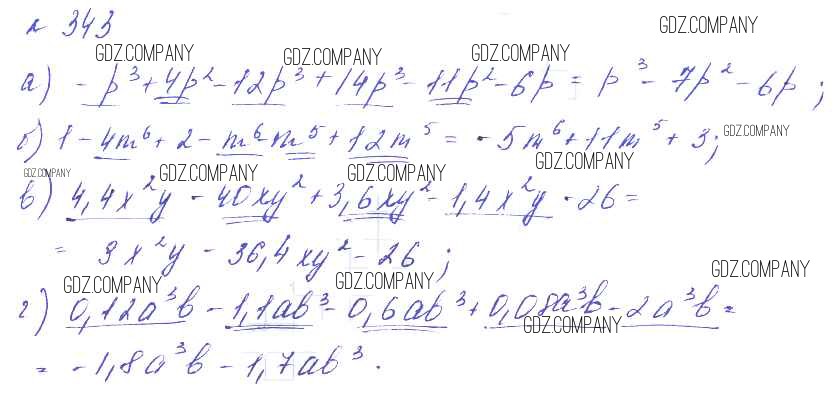 № 343
GDZ.COMPANY
GDZ.COMPANY GDZ.COMPANY GDZ.COMPANY
а) - p³ + 4p² - 12p³ + 14p³ - 11p² - 6p = p³ - 7p² - 6p ;
б) 1 - 4m⁶ + 2 - m⁶ - m⁵ + 12m⁵ = - 5m⁶ + 11m⁵ + 3; GDZ.COMPANY
GDZ.COMPANY GDZ.COMPANY GDZ.COMPANY GDZ.COMPANY
в) 4,4x²y - 40xy² + 3,6xy² - 1,4x²y - 26 =
= 3x²y - 36,4xy² - 26 ;
GDZ.COMPANY GDZ.COMPANY GDZ.COMPANY
г) 0,12a³b - 1,1ab³ - 0,6ab³ + 0,08a³b - 2a³b =
GDZ.COMPANY
= - 1,8a³b - 1,7ab³ .